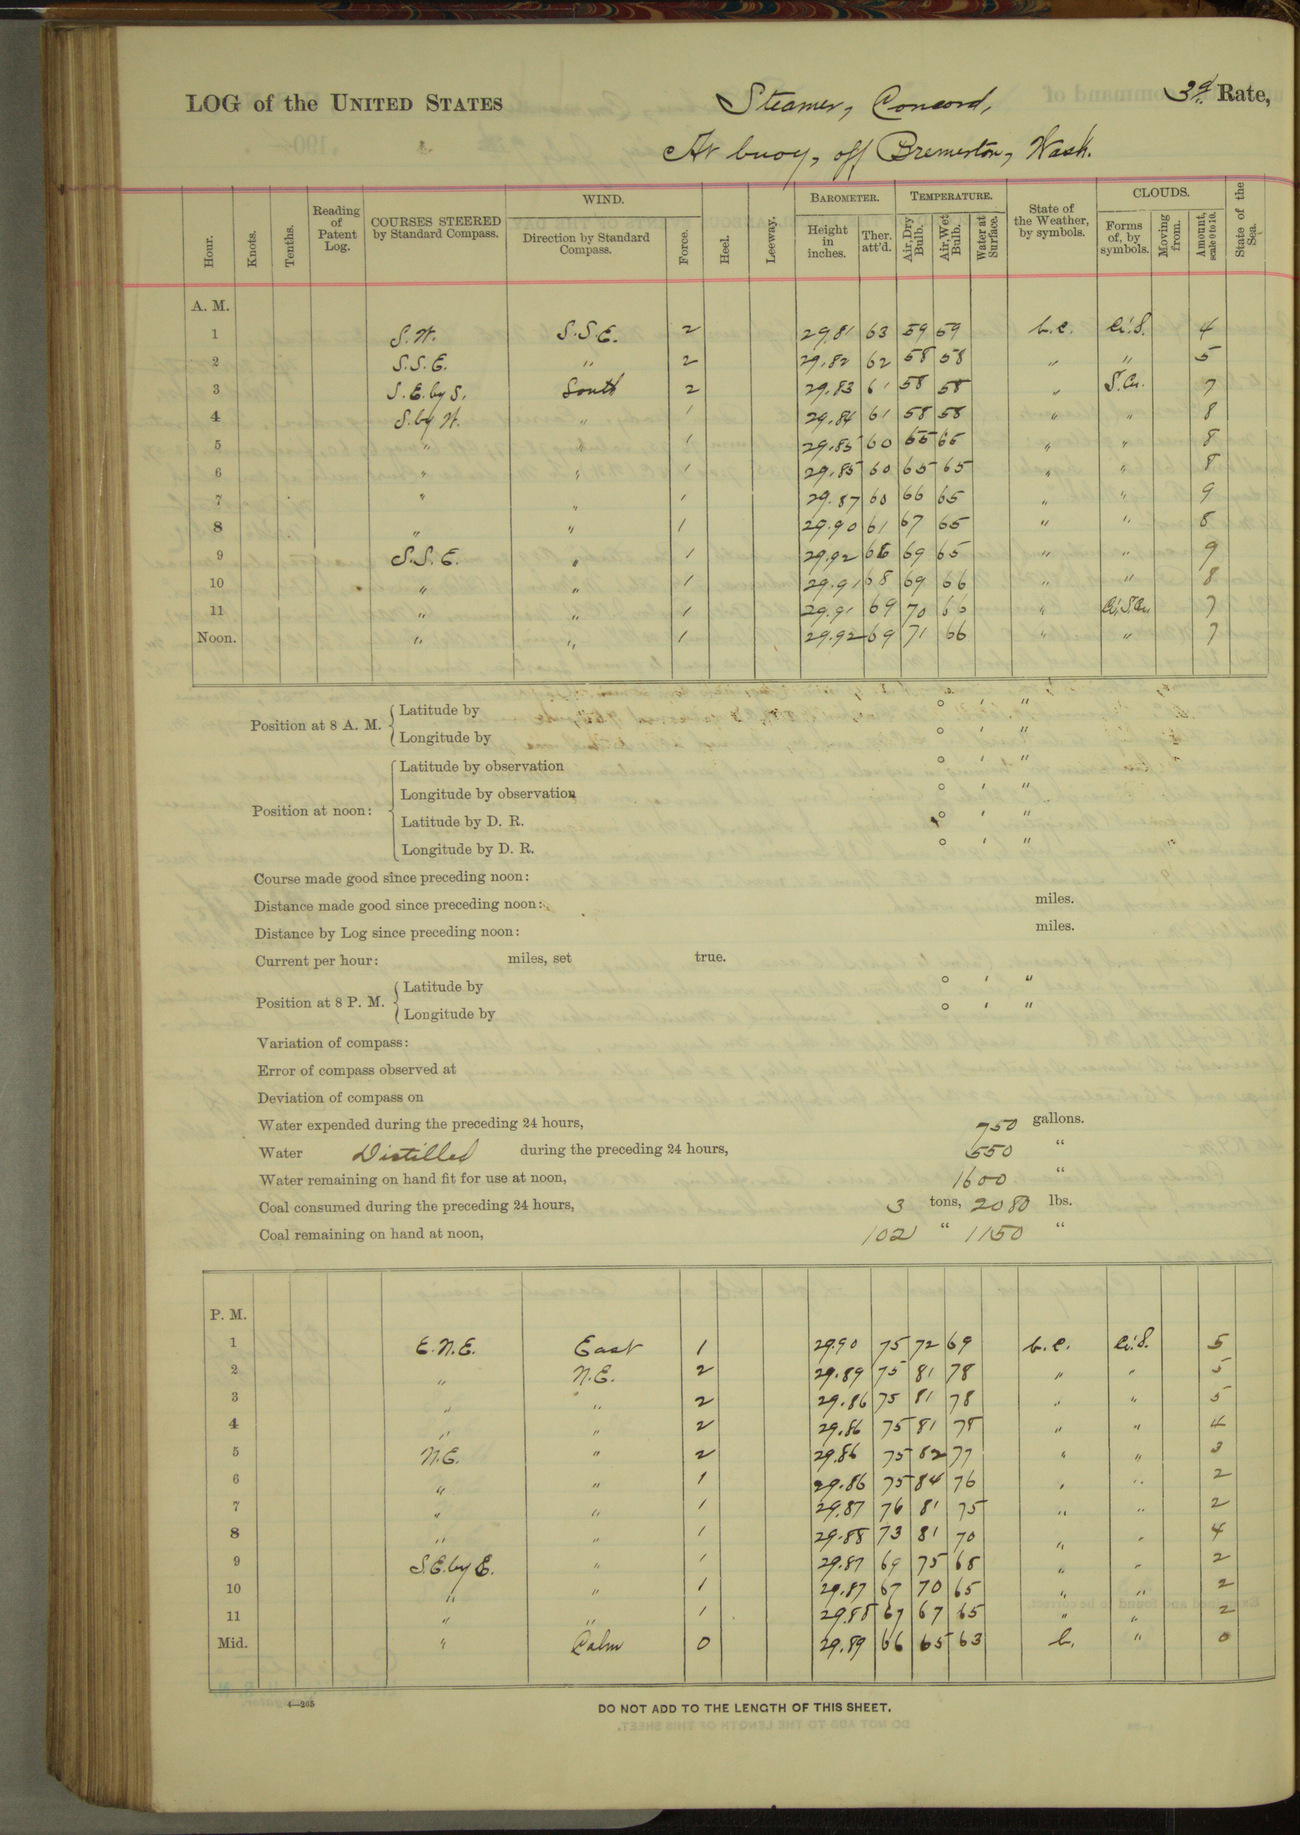 LOG of the UNITED STATES Steamer, Concord, 3d Rate,
At buoy, off Bremerton, Wash.
Hour. Knots. Tenths. Reading of Patent Log. COURSES STEERED by Standard Compass. WIND. Direction by Standard Compass. Force. Heel. Leeway. BAROMETER. Height in inches. Ther. att'd. TEMPERATURE. Air, Dry Bulb. Air, Wet Bulb. Water at Surface. State of the Weather, by symbols. CLOUDS. Forms of, by symbols. Moving from. Amount, scale 0 to 10. State of the Sea.
A. M.
1 S.W. S.S.E. 2 29.81 63 59 59 b.c. Ci.S. 4
2 S.S.E. " 2 29.82 62 58 58 " " 5
3 S.E. by S. South 2 29.83 61 58 58 " S.Cu. 7
4 S. by W. " 1 29.84 61 58 58 " " 8
5 " " 1 29.85 60 65 65 " " 8
6 " " 1 29.85 60 65 65 " " 8
7 " " 1 29.87 60 66 65 " " 9
8 " " 1 29.90 61 67 65 " " 8
9 S.S.E. " 1 29.92 66 69 65 " " 9
10 " " 1 29.91 68 69 66 " " 8
11 " " 1 29.91 69 70 66 " Ci.S.Cu. 7
Noon. " " 1 29.92 69 71 66 " " 7
Position at 8 A. M. Latitude by ° ' "
Longitude by ° ' "
Position at noon: Latitude by observation ° ' "
Longitude by observation ° ' "
Latitude by D. R. ° ' "
Longitude by D. R. ° ' "
Course made good since preceding noon:
Distance made good since preceding noon: miles.
Distance by Log since preceding noon: miles.
Current per hour: miles, set true.
Position at 8 P. M. Latitude by ° ' "
Longitude by ° ' "
Variation of compass:
Error of compass observed at
Deviation of compass on
Water expended during the preceding 24 hours, 750 gallons.
Water Distilled during the preceding 24 hours, 550 "
Water remaining on hand fit for use at noon, 1600 "
Coal consumed during the preceding 24 hours, 3 tons, 2080 lbs.
Coal remaining on hand at noon, 102 " 1150 "
P. M.
1 E.N.E. East 1 29.90 75 72 69 b.c. Ci.S. 5
2 " N.E. 2 29.89 75 81 78 " " 5
3 " " 2 29.86 75 81 78 " " 5
4 " " 2 29.86 75 81 78 " " 4
5 N.E. " 2 29.86 75 82 77 " " 3
6 " " 1 29.86 75 84 76 " " 2
7 " " 1 29.87 76 81 75 " " 2
8 " " 1 29.88 73 81 70 " " 4
9 S.E. by E. " 1 29.87 69 75 68 " " 2
10 " " 1 29.87 67 70 65 " " 2
11 " " 1 29.88 67 67 65 " " 2
Mid. " Calm 0 29.89 66 65 63 b. " 0
4—265
DO NOT ADD TO THE LENGTH OF THIS SHEET.